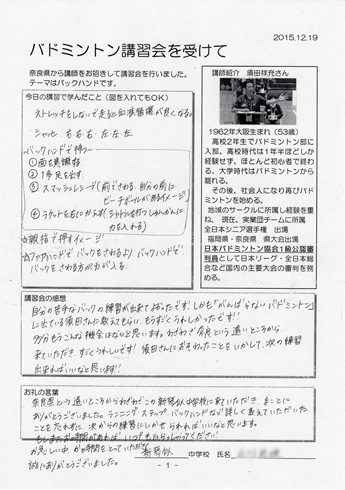 2015.12.19
バドミントン講習会を受けて
奈良県から講師をお招きして講習会を行いました。
テーマはバックハンドです。
今日の講習で学んだこと（図を入れてもOK）
ストレッチをしないで走ると血液循環が良くなる。
シャッセ 右・右・右・左・左・左
バックハンドで押す
① 面を意識
② 1歩足を出す
③ スマッシュレシーブ（前でさわる。自分の前に
ビーチボールがあるイメージ）
④ ラケットを右にかえす（シャトルを打つしゅんかんに
力を入れる）
☆親指で押すイメージ
☆フォアハンドでバックをされるより、バックハンドで
バックをされる方が力が入る。
講師紹介 須田祥充さん
1962年大阪生まれ（53歳）
高校2年生でバドミントン部に
入部。高校時代は1年半ほどしか
経験せず、ほとんど初心者で終わ
る。大学時代はバドミントンから
離れる。
その後、社会人になり再びバド
ミントンを始める。
地域のサークルに所属し経験を重
ね、現在、実業団チームに所属
全日本シニア選手権 出場
福岡県・奈良県 県大会出場
日本バドミントン協会1級公認審
判員として日本リーグ・全日本総
合など国内の主要大会の審判を務
める。
講習会の感想
自分の苦手なバックの練習が出来てよかったです！しかも「がんばらないバドミントン」
に出ている須田さんに教えてもらい、もうすごくうれしかったです!!
多分もうこんな機会はないと思います。わざわざ奈良という遠いところから
来ていただきすごくうれしいです！須田さんにおそわったことをいかして、次の練習
出来ればいいなと思います!!
お礼の言葉
奈良県という遠いところからわざわざこの新琴似中学校に来ていただき、まことに
ありがとうございました。ランニング、ステップ、バックハンドなど詳しく教えていただいた
ことを忘れずに、次からの練習にいかせられればいいなと思います。
もしまたお時間があれば、いつでもいらっしゃってください！
お忙しい中、お時間をとっていただき
誠にありがとうございました。
新琴似 中学校 氏名
- 1 -